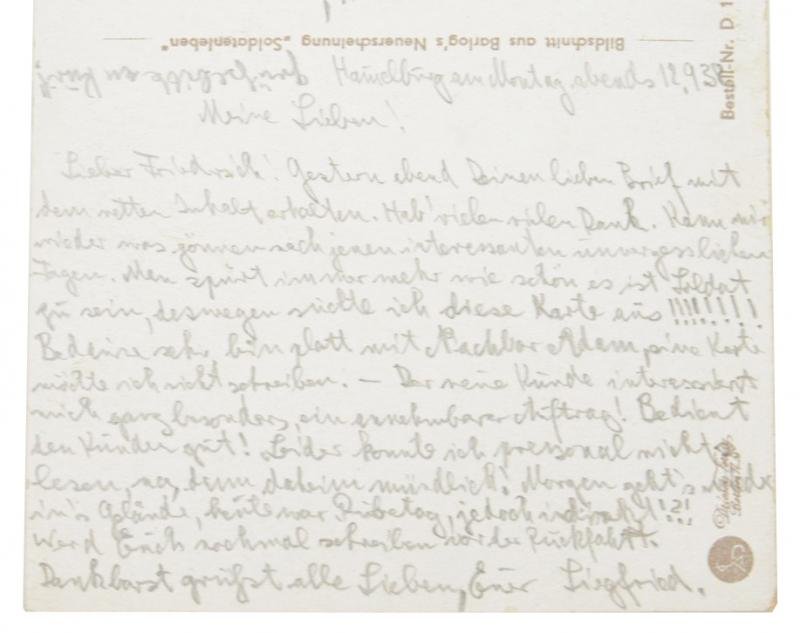 Bildschnitt aus Barlog's Neuerscheinung „Soldatenleben"
Bestell-Nr. D 1
Hammelburg am Montag abends 12.9.38
Meine Lieben!
Lieber Friedrich! Gestern abend Deinen lieben Brief mit
dem netten Inhalt erhalten. Hab' vielen vielen Dank. Kann mir
wieder was gönnen nach jenen interessanten unvergesslichen
Tagen. Man spürt immer mehr wie schön es ist Soldat
zu sein, deswegen suchte ich diese Karte aus !!!!!!!!
sehr, bin platt mit Nachbar Adam, eine Karte
möchte ich nicht schreiben. – Der neue Kunde interessiert
mich ganz besonders, ein annehmbarer Auftrag! Bedient
den Kunden gut! Leider konnte ich personal nicht
lesen, na, dann daheim mündlich! Morgen geht's wieder
in's Gelände, heute war Ruhetag, jedoch !?!
Werd Euch nochmal schreiben vor der Rückfahrt.
Dankbarst grüßt alle Lieben, Euer Siegfried.